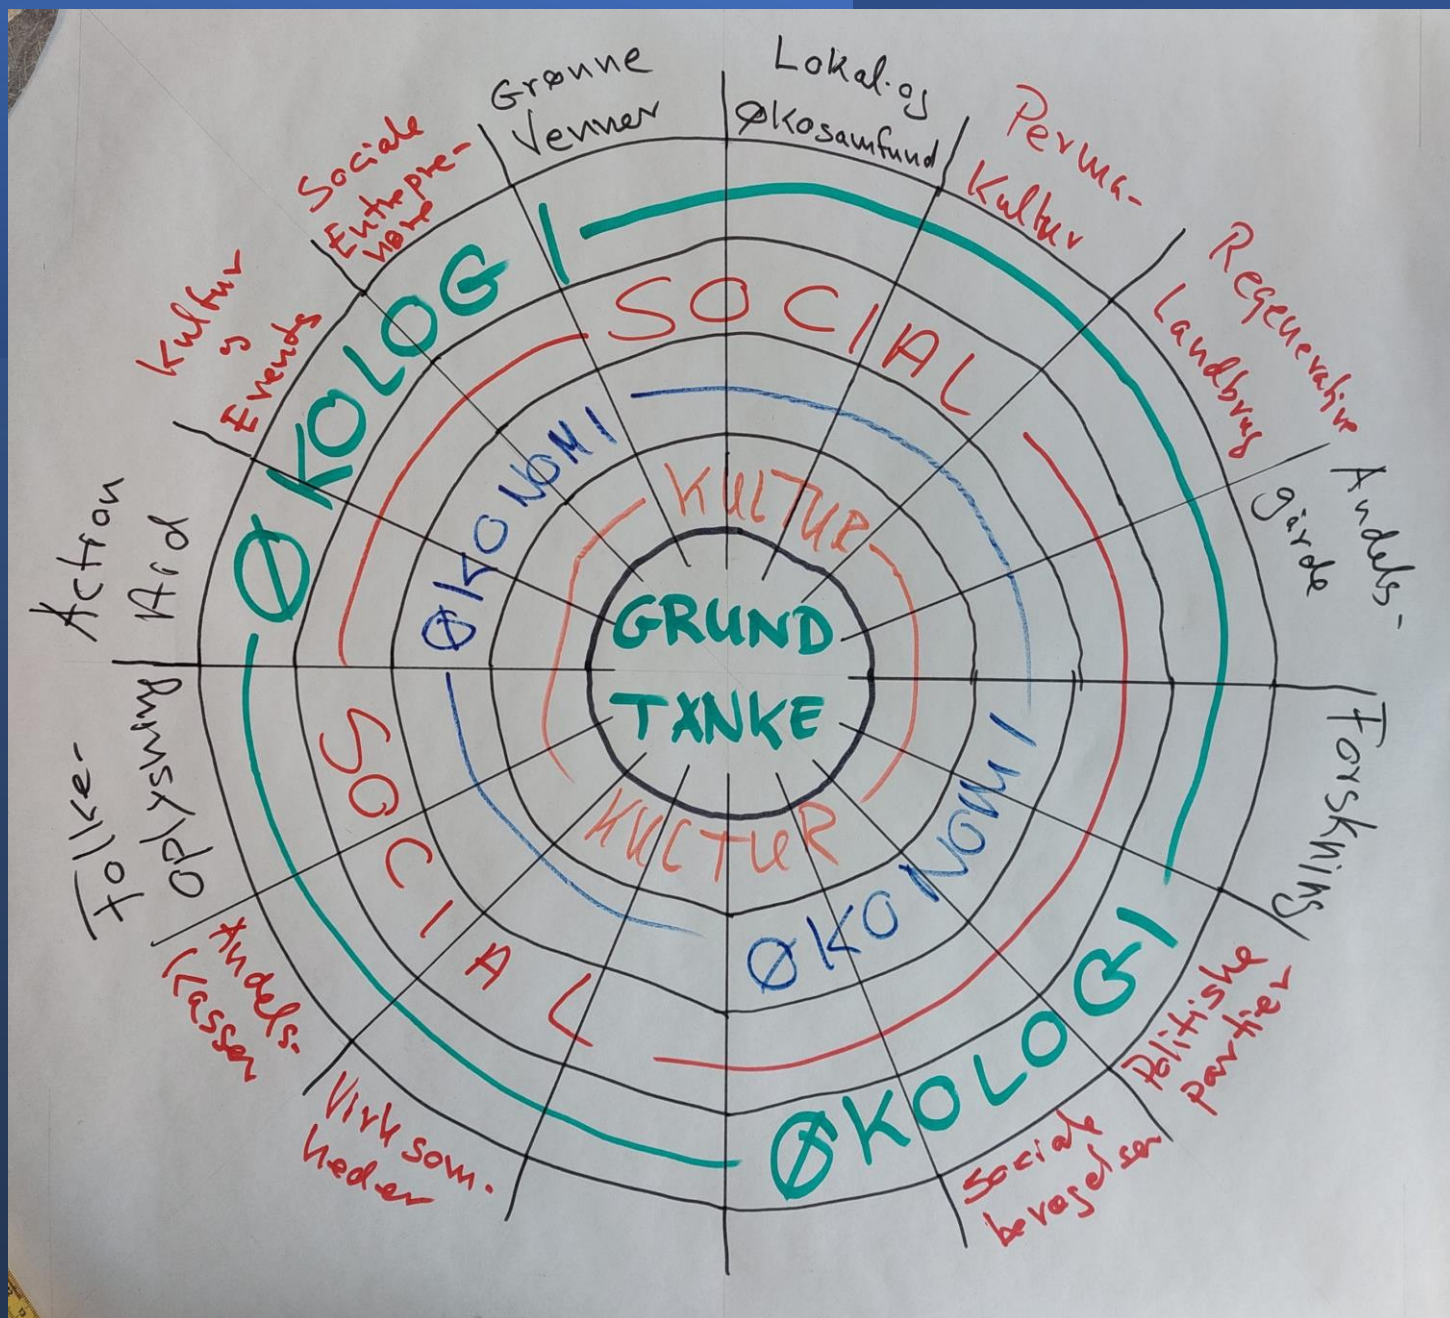 Grønne
Venner
Lokal-og
Økosamfund
Perma-
Kultur
Regenerative
Landbrug
Andels-
gårde
Forskning
Politiske
partier
Sociale
bevægelser
Virksom-
heder
Andels-
Kassen
Folke-
oplysning
Action
Aid
Kultur
og
Events
Sociale
Entrepre-
nøre
ØKOLOGI
SOCIAL
ØKONOMI
KULTUR
GRUND
TANKE
KULTUR
ØKONOMI
SOCIAL
ØKOLOGI